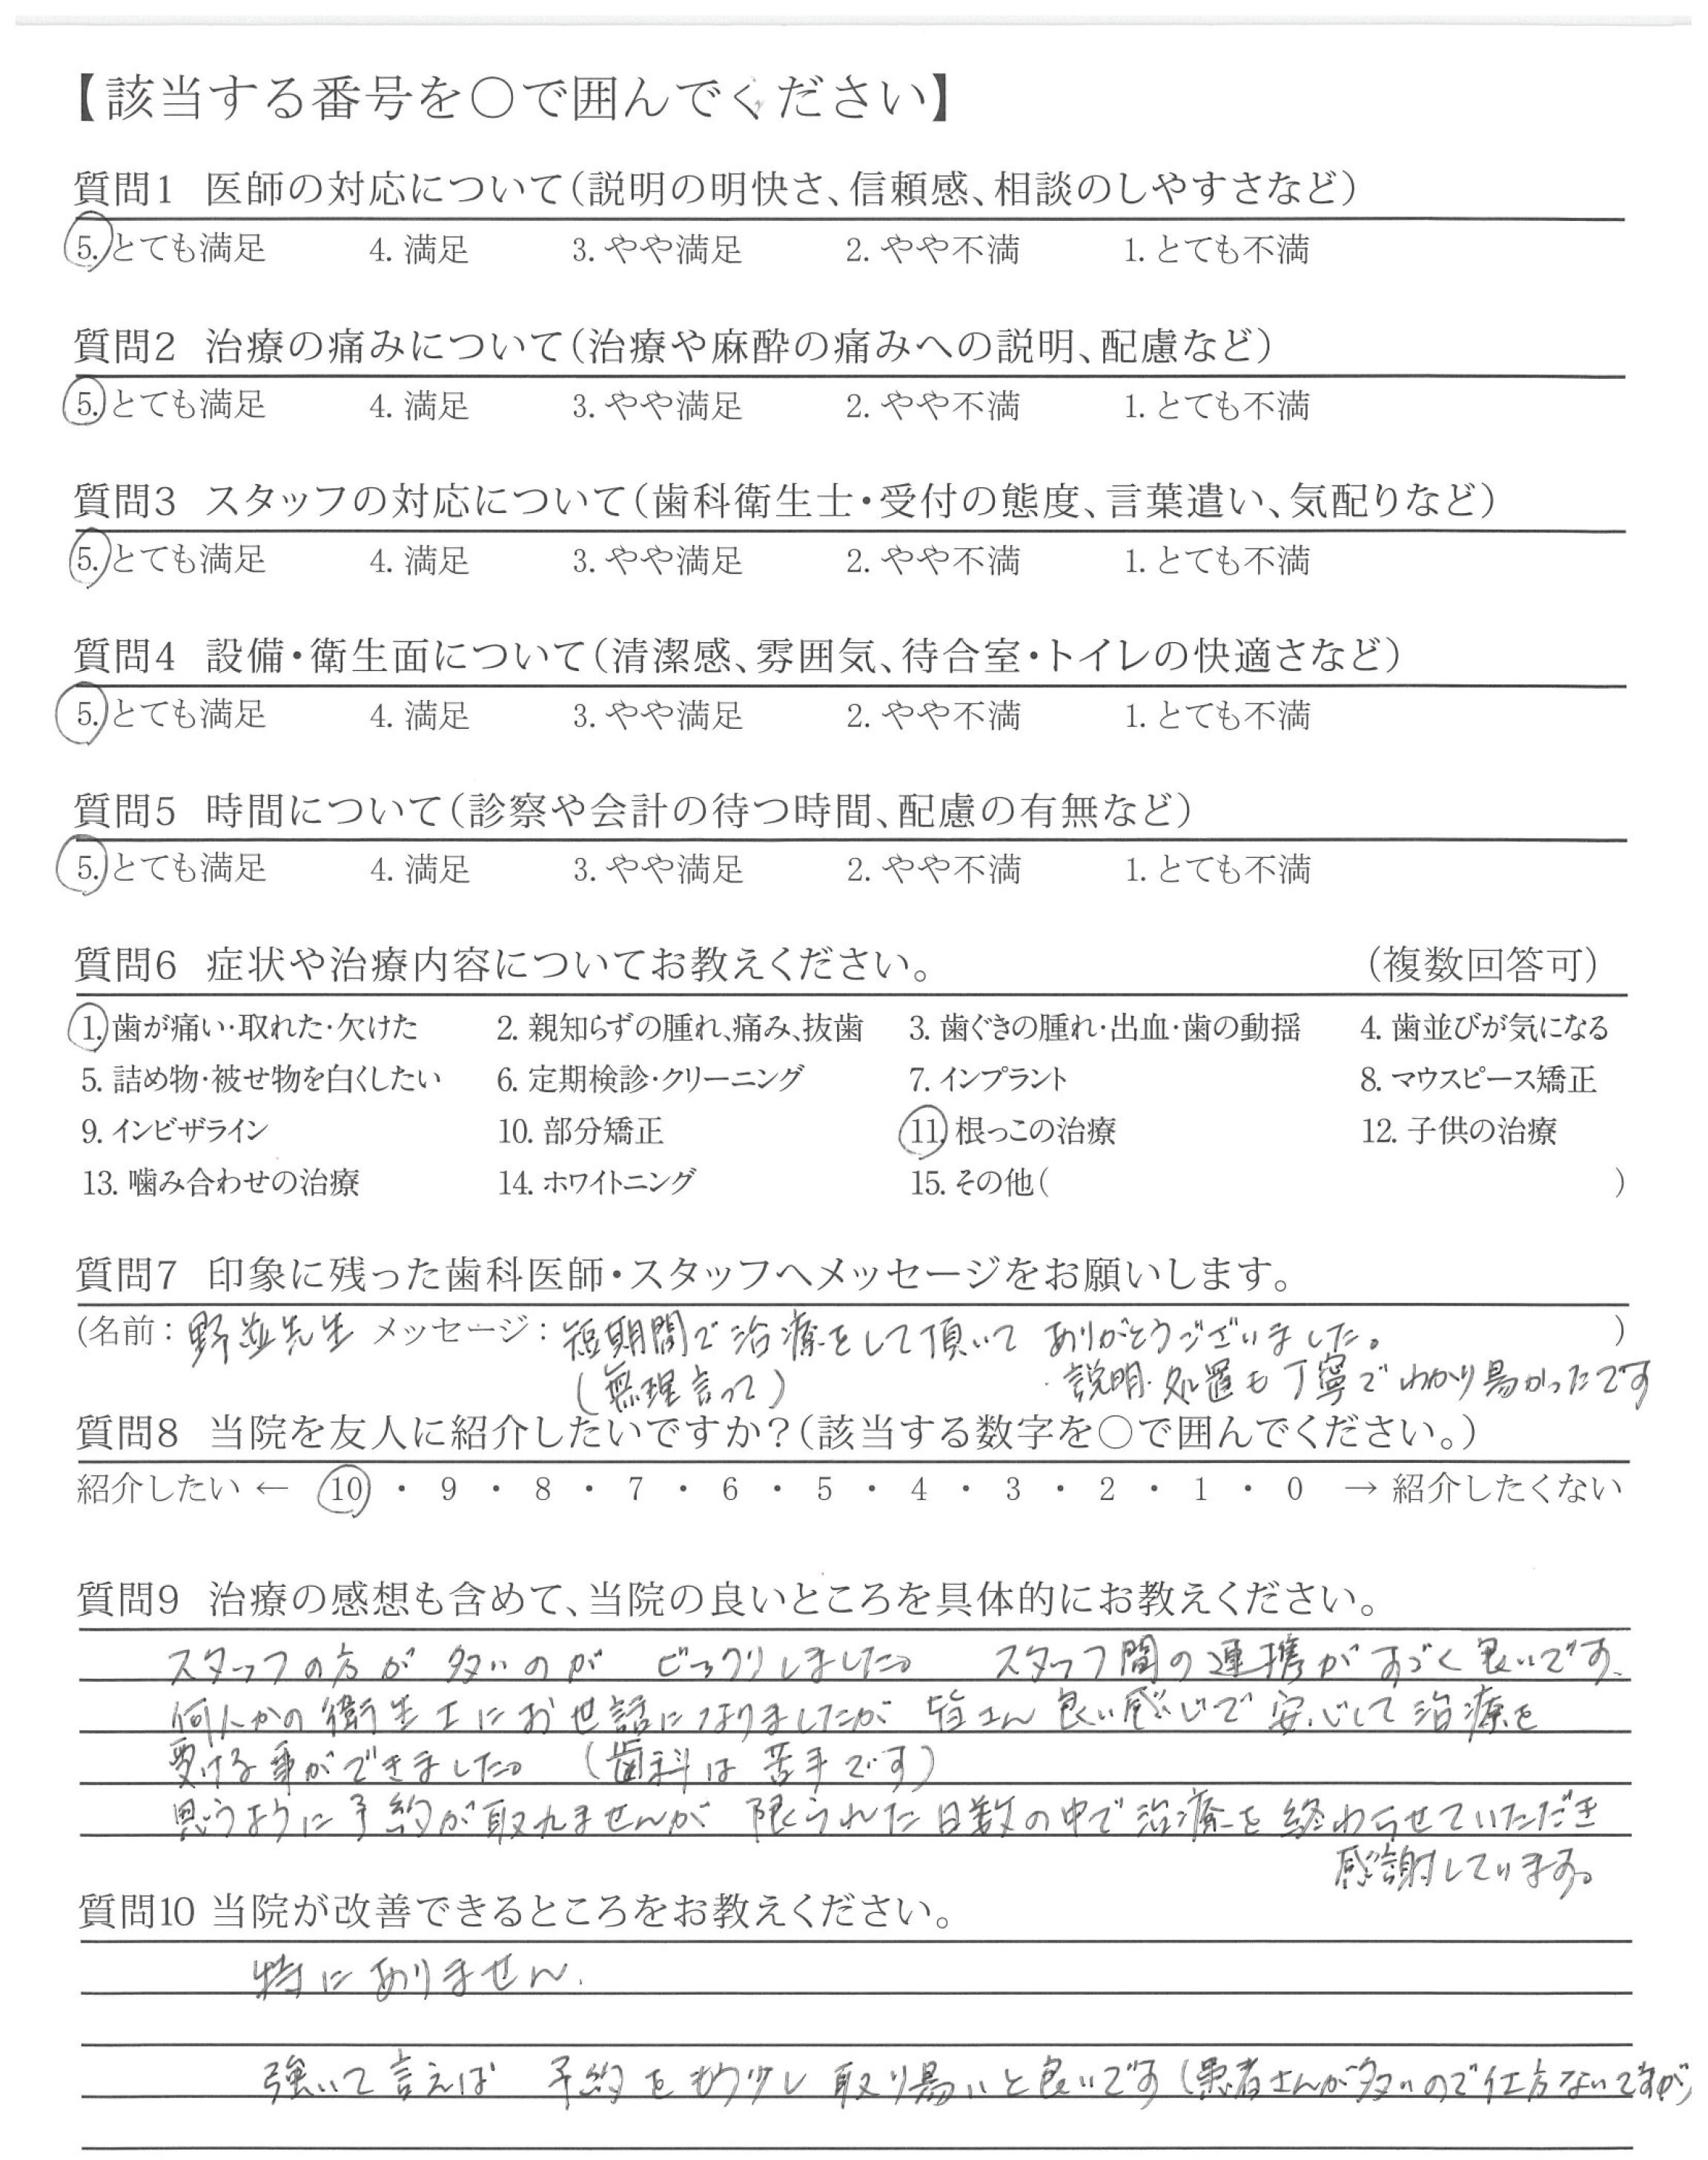 【該当する番号を○で囲んでください】
質問1 医師の対応について(説明の明快さ、信頼感、相談のしやすさなど)
5. とても満足 4. 満足 3. やや満足 2. やや不満 1. とても不満
質問2 治療の痛みについて(治療や麻酔の痛みへの説明、配慮など)
5. とても満足 4. 満足 3. やや満足 2. やや不満 1. とても不満
質問3 スタッフの対応について(歯科衛生士・受付の態度、言葉遣い、気配りなど)
5. とても満足 4. 満足 3. やや満足 2. やや不満 1. とても不満
質問4 設備・衛生面について(清潔感、雰囲気、待合室・トイレの快適さなど)
5. とても満足 4. 満足 3. やや満足 2. やや不満 1. とても不満
質問5 時間について(診察や会計の待つ時間、配慮の有無など)
5. とても満足 4. 満足 3. やや満足 2. やや不満 1. とても不満
質問6 症状や治療内容についてお教えください。 (複数回答可)
1. 歯が痛い・取れた・欠けた 2. 親知らずの腫れ、痛み、抜歯 3. 歯ぐきの腫れ・出血・歯の動揺 4. 歯並びが気になる
5. 詰め物・被せ物を白くしたい 6. 定期検診・クリーニング 7. インプラント 8. マウスピース矯正
9. インビザライン 10. 部分矯正 11. 根っこの治療 12. 子供の治療
13. 噛み合わせの治療 14. ホワイトニング 15. その他( )
質問7 印象に残った歯科医師・スタッフへメッセージをお願いします。
(名前: 野並先生 メッセージ: 短期間で治療をして頂いて ありがとうございました。 )
(無理言って) 説明・処置も丁寧でわかり易かったです
質問8 当院を友人に紹介したいですか?(該当する数字を○で囲んでください。)
紹介したい ← 10 ・ 9 ・ 8 ・ 7 ・ 6 ・ 5 ・ 4 ・ 3 ・ 2 ・ 1 ・ 0 → 紹介したくない
質問9 治療の感想も含めて、当院の良いところを具体的にお教えください。
スタッフの方が 多いのが ビックリしました。 スタッフ間の連携がすごく良いです、
何人かの衛生士にお世話になりましたが 皆さん良い感じで安心して治療を
受ける事ができました。 (歯科は苦手です)
思うように予約が取れませんが 限られた日数の中で治療を終わらせていただき
感謝しています。
質問10 当院が改善できるところをお教えください。
特にありません.
強いて言えば 予約をもう少し取り易いと良いです(患者さんが多いので仕方ないですが)